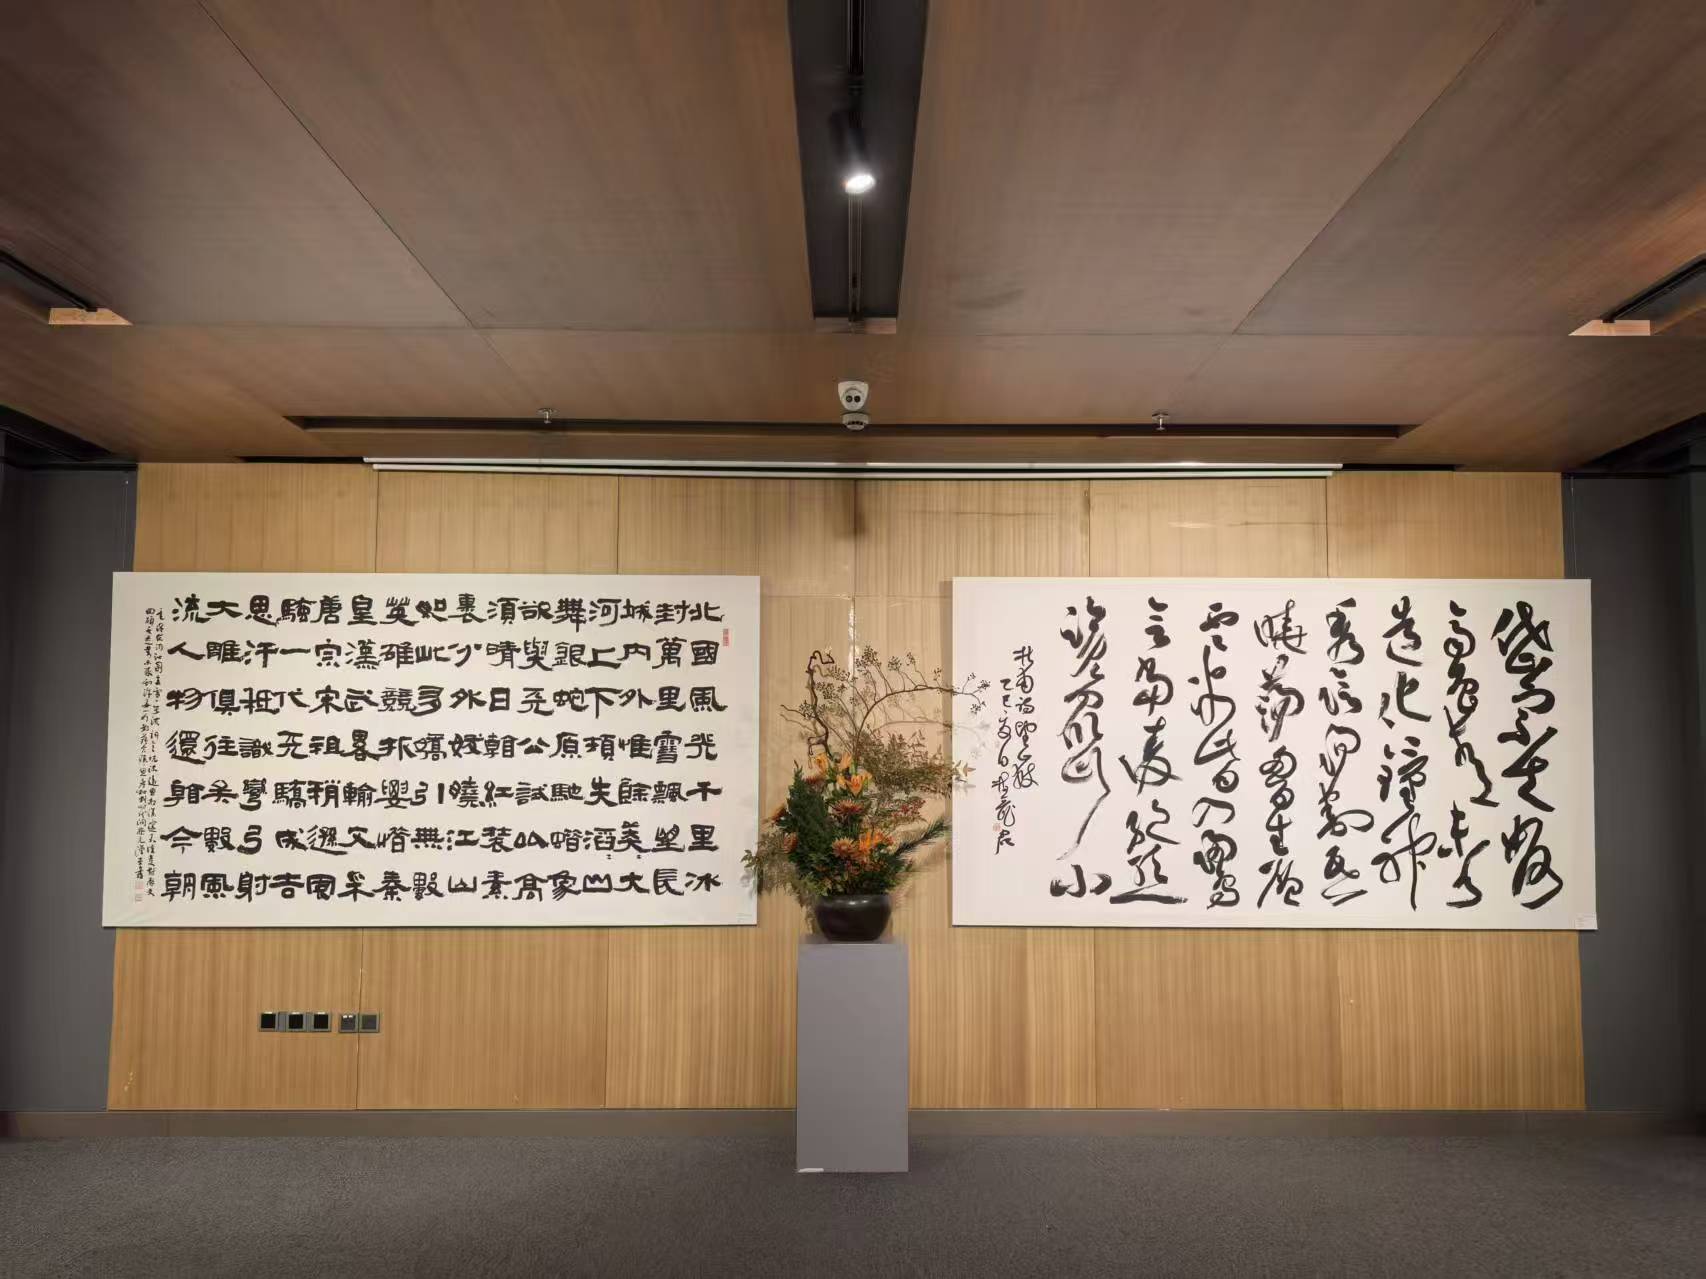 北國風光千里冰
封萬里雪飄望長
城内外惟餘莽〻大
河上下頓失滔〻山
舞銀蛇原馳蜡象
欲與天公試比高
須晴日看紅裝素
裹分外妖嬈江山
如此多嬌引無數
英雄競折腰惜秦
皇漢武略輸文采
唐宗宋祖稍遜風
騷一代天驕成吉
思汗祗識彎弓射
大雕俱往矣數風
流人物還看今朝
岱宗夫如何
齊魯青未了
造化鍾神
秀陰陽割昏
曉蕩胸生層
雲決眥入歸鳥
會當凌絕頂
一覽眾山小
杜甫詩望嶽
乙巳夏日